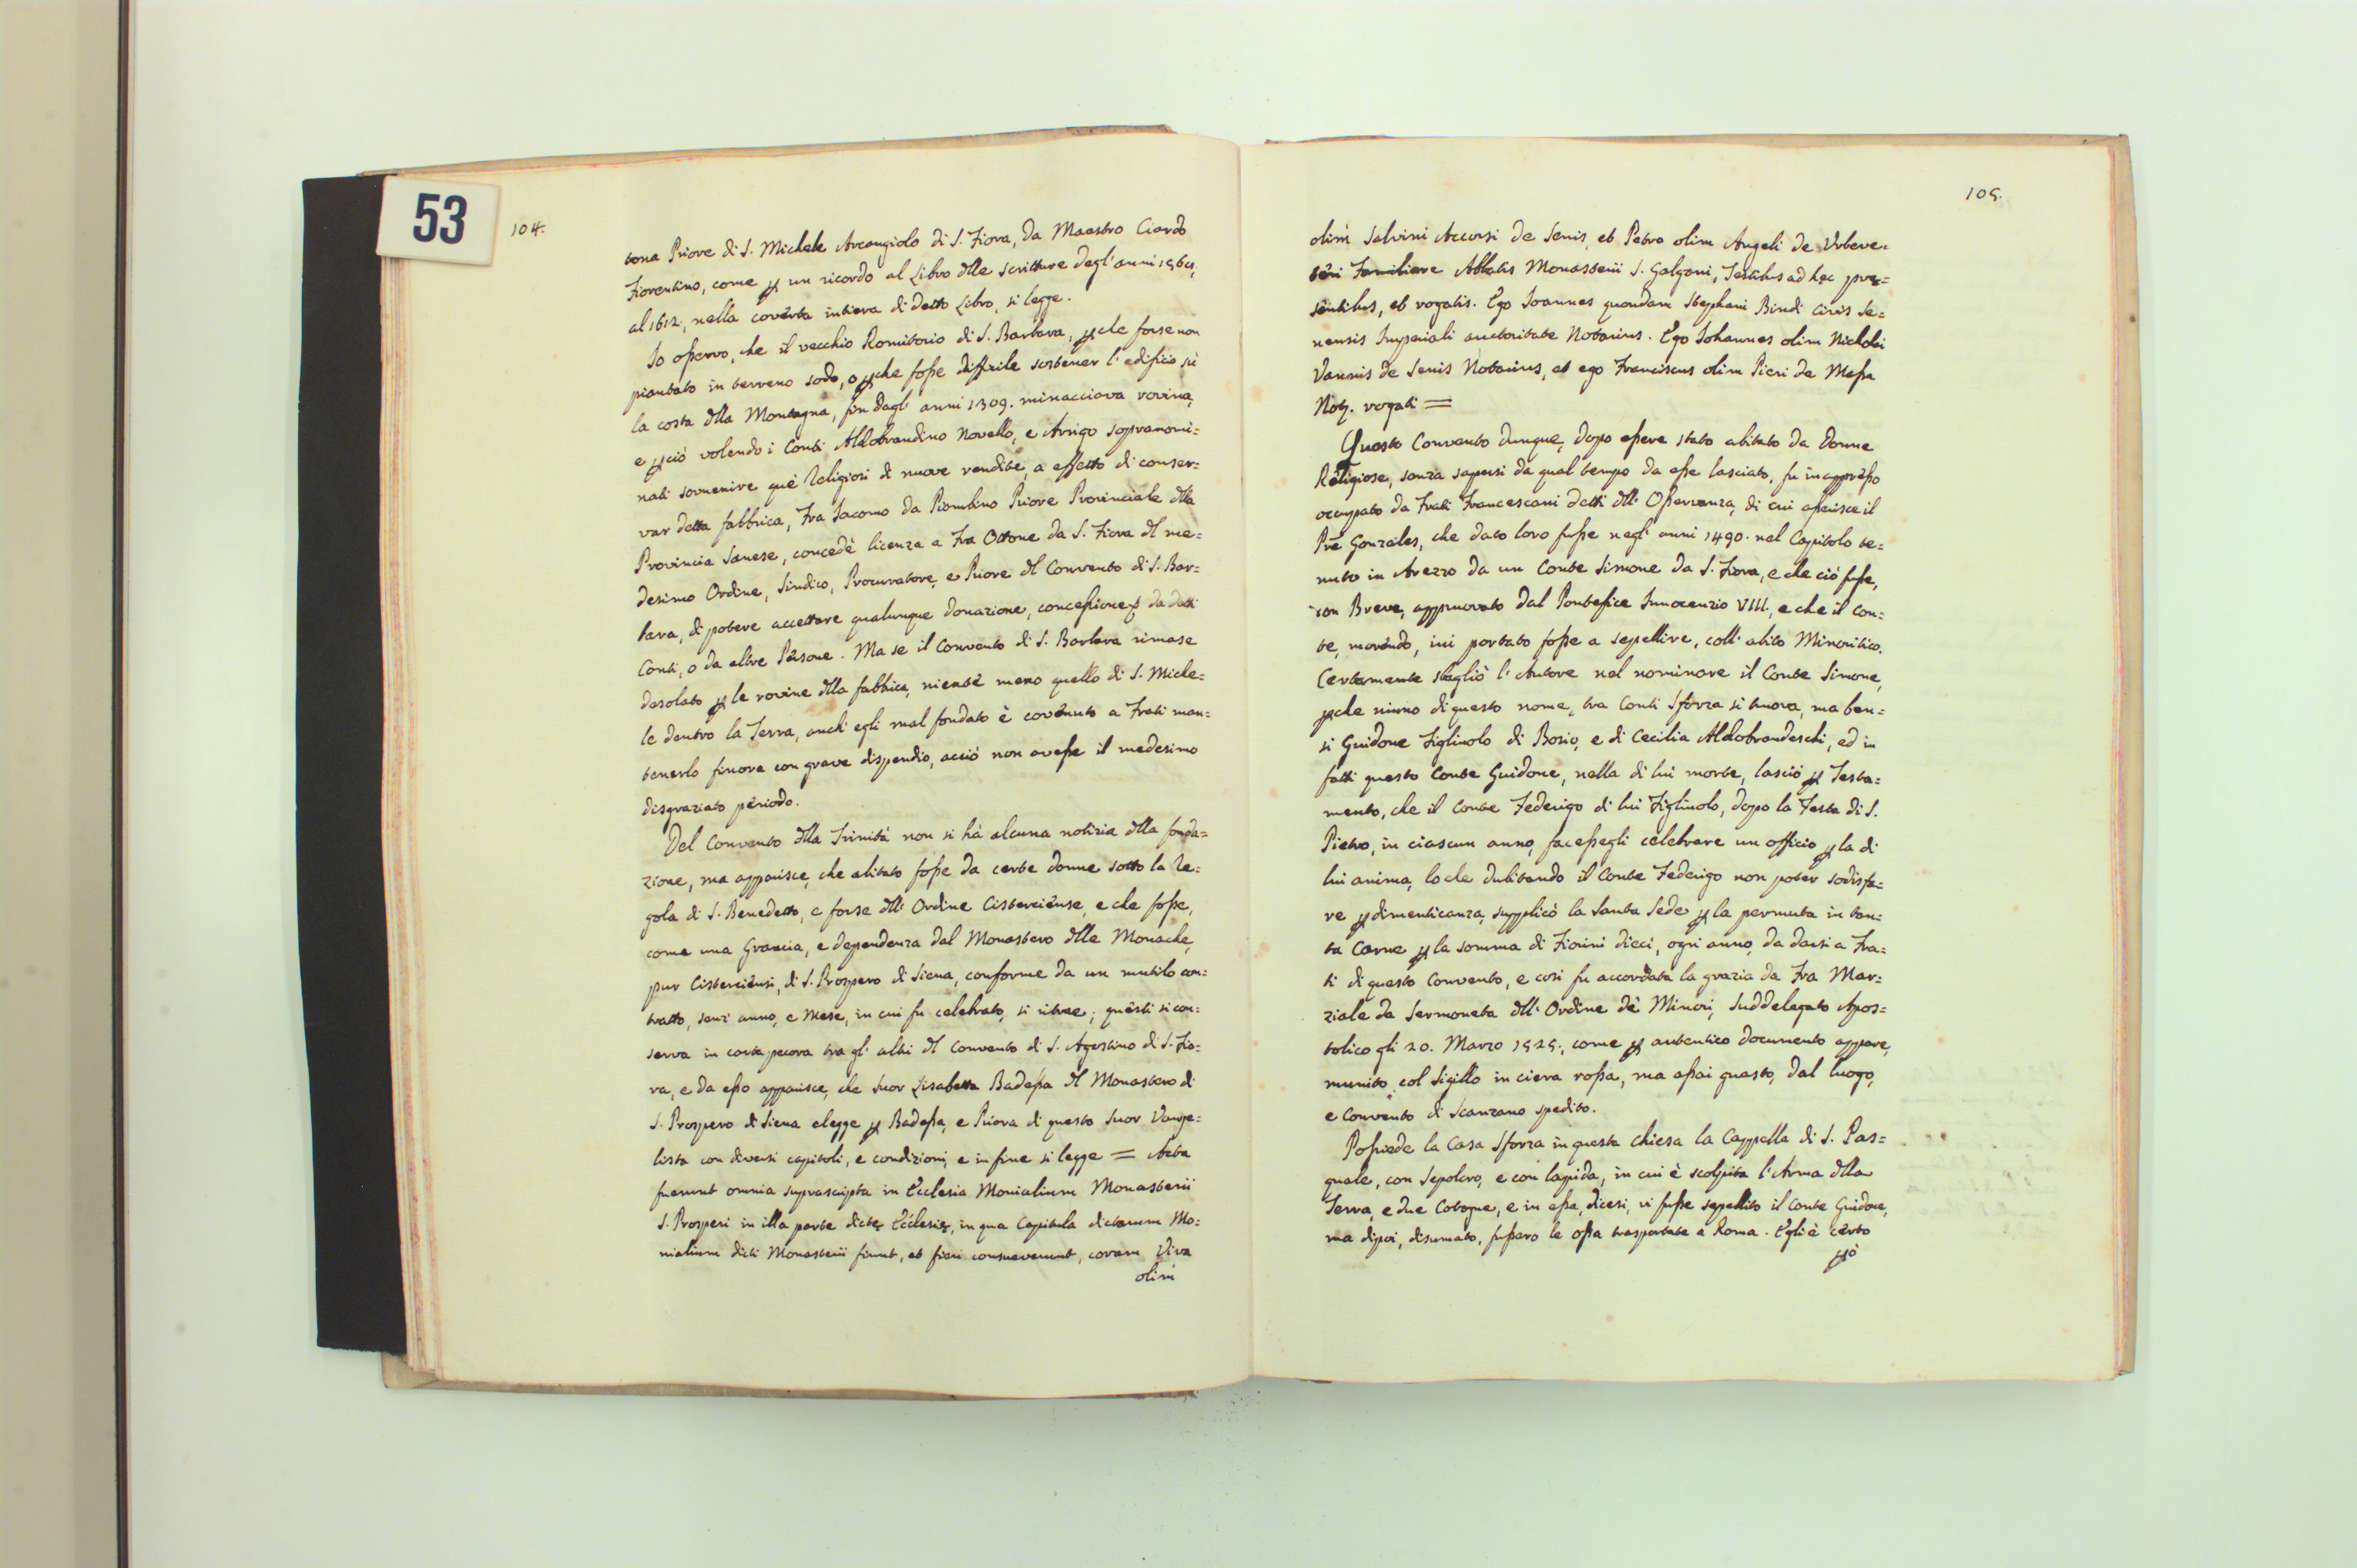 53
104.
tona Priore di S. Michele Arcangiolo di S. Fiora, da Maestro Ciardo
Fiorentino, come ꝑ un ricordo al Libro dlle scritture degl' anni 1564,
al 1612, nella coverta intiera di detto Libro, si legge.
Io oßervo, che il vecchio Romitorio di S. Barbara, ꝑche forse non
piantato in terreno sodo, o ꝑche foße difficile sostener l' edificio sù
la costa dlla Montagna, fin dagl' anni 1309. minacciava rovina,
e ꝑciò volendo i Conti Aldobrandino Novello, e Arrigo sopranomi=
nati sovvenire què Religiosi di nuove rendite, a effetto di conser=
var detta fabbrica, Fra Iacomo da Piombino Priore Provinciale dlla
Provincia Sanese, concedè licenza a Fra Ottone da S. Fiora dl me=
desimo Ordine, Sindico, Procuratore, e Priore dl Convento di S. Bar=
bara, di potere accettare qualunque donazione, conceßione da detti
Conti, o da altre Persone. Ma se il Convento di S. Barbara rimase
desolato ꝑ le rovine dlla fabbrica, niente meno quello di S. Miche=
le dentro la Terra, anch' egli mal fondato è covenuto a Frati man=
tenerlo finora con grave dispendio, acciò non aveße il medesimo
disgraziato periodo.
Del Convento dlla Trinità non si hà alcuna notizia dlla fonda=
zione, ma apparisce, che abitato foße da certe donne sotto la Re=
gola di S. Benedetto, e forse dll' Ordine Cisterciense, e che foße,
come una Grancia, e dependenza dal Monastero dlle Monache,
pur Cisterciensi, di S. Prospero di Siena, conforme da un mutilo con=
tratto, senz' anno, e Mese, in cui fu celebrato, si ritrae; questi si con=
serva in carta pecora tra gl' altri dl Convento di S. Agostino di S. Fio=
ra, e da eßo apparisce, che Suor Lisabetta Badeßa dl Monastero di
S. Prospero di Siena elegge ꝑ Badeßa, e Priora di questo Suor Vange=
lista con diversi capitoli, e condizioni, e in fine si legge = Acta
fuerunt omnia suprascripta in Ecclesia Monialium Monasterii
S. Prosperi in illa parte dictę Ecclesię, in qua Capitula dictarum Mo=
nialium dicti Monasterii fiunt, et fieri consueverunt, coram Viva
olim
105.
olim Salvini Accorsi de Senis, et Petro olim Angeli de Vrbeve=
teri Familiare Abbatis Monasterii S. Galgani, Testibus ad hęc prę=
sentibus, et rogatis. Ego Ioannes quondam Stephani Bindi Civis Se=
nensis Imperiali auctoritate Notarius. Ego Iohannes olim Nicholai
Vannis de Senis Notarius, et ego Franciscus olim Pieri de Maßa
Notę. rogati =
Questo Convento dunque, dopo eßere stato abitato da Donne
Religiose, senza sapersi da qual tempo da eße lasciato, fu in appreßo
occupato da Frati Francescani detti dll' Oßervanza, di cui aßerisce il
Pre Gonzales, che dato loro fuße negl' anni 1490. nel Capitolo te=
nuto in Arezzo da un Conte Simone da S. Fiora, e che ciò fuße,
con Breve, appruovato dal Pontefice Innocenzio VIII, e che il Con=
te, morendo, ivi portato foße a sepellire, coll' abito Minoritico.
Certamente sbagliò l' Autore nel nominare il Conte Simone,
ꝑche niuno di questo nome, tra Conti Sforza si truova, ma ben=
si Guidone Figliuolo di Bosio, e di Cecilia Aldobrandeschi, ed in
fatti questo Conte Guidone, nella di lui morte, lasciò ꝑ Testa=
mento, che il Conte Federigo di lui Figliuolo, dopo la Festa di S.
Pietro, in ciascun anno, faceßegli celebrare un officio ꝑ la di
lui anima, lo che dubitando il Conte Federigo non poter sodisfa=
re ꝑ dimenticanza, supplicò la Santa Sede ꝑ la permuta in tan=
ta Carne ꝑ la somma di Fiorini dieci, ogni anno, da darsi a Fra=
ti di questo Convento, e così fu accordata la grazia da Fra Mar=
ziale da Sermoneta dll' Ordine dè Minori, Suddelegato Apos=
tolico gli 20. Marzo 1525., come ꝑ autentico documento appare,
munito col Sigillo in ciera roßa, ma aßai guasto, dal luogo,
e Convento di Scanzano spedito.
Poßiede la Casa Sforza in questa Chiesa la Cappella di S. Pas=
quale, con Sepolcro, e con lapida, in cui è scolpita l' Arma dlla
Terra, e due Cotogne, e in eßa, dicesi, vi fuße sepellito il Conte Guidone,
ma dipoi, disumato, fußero le oßa trasportate a Roma. Egli è certo
ꝑò